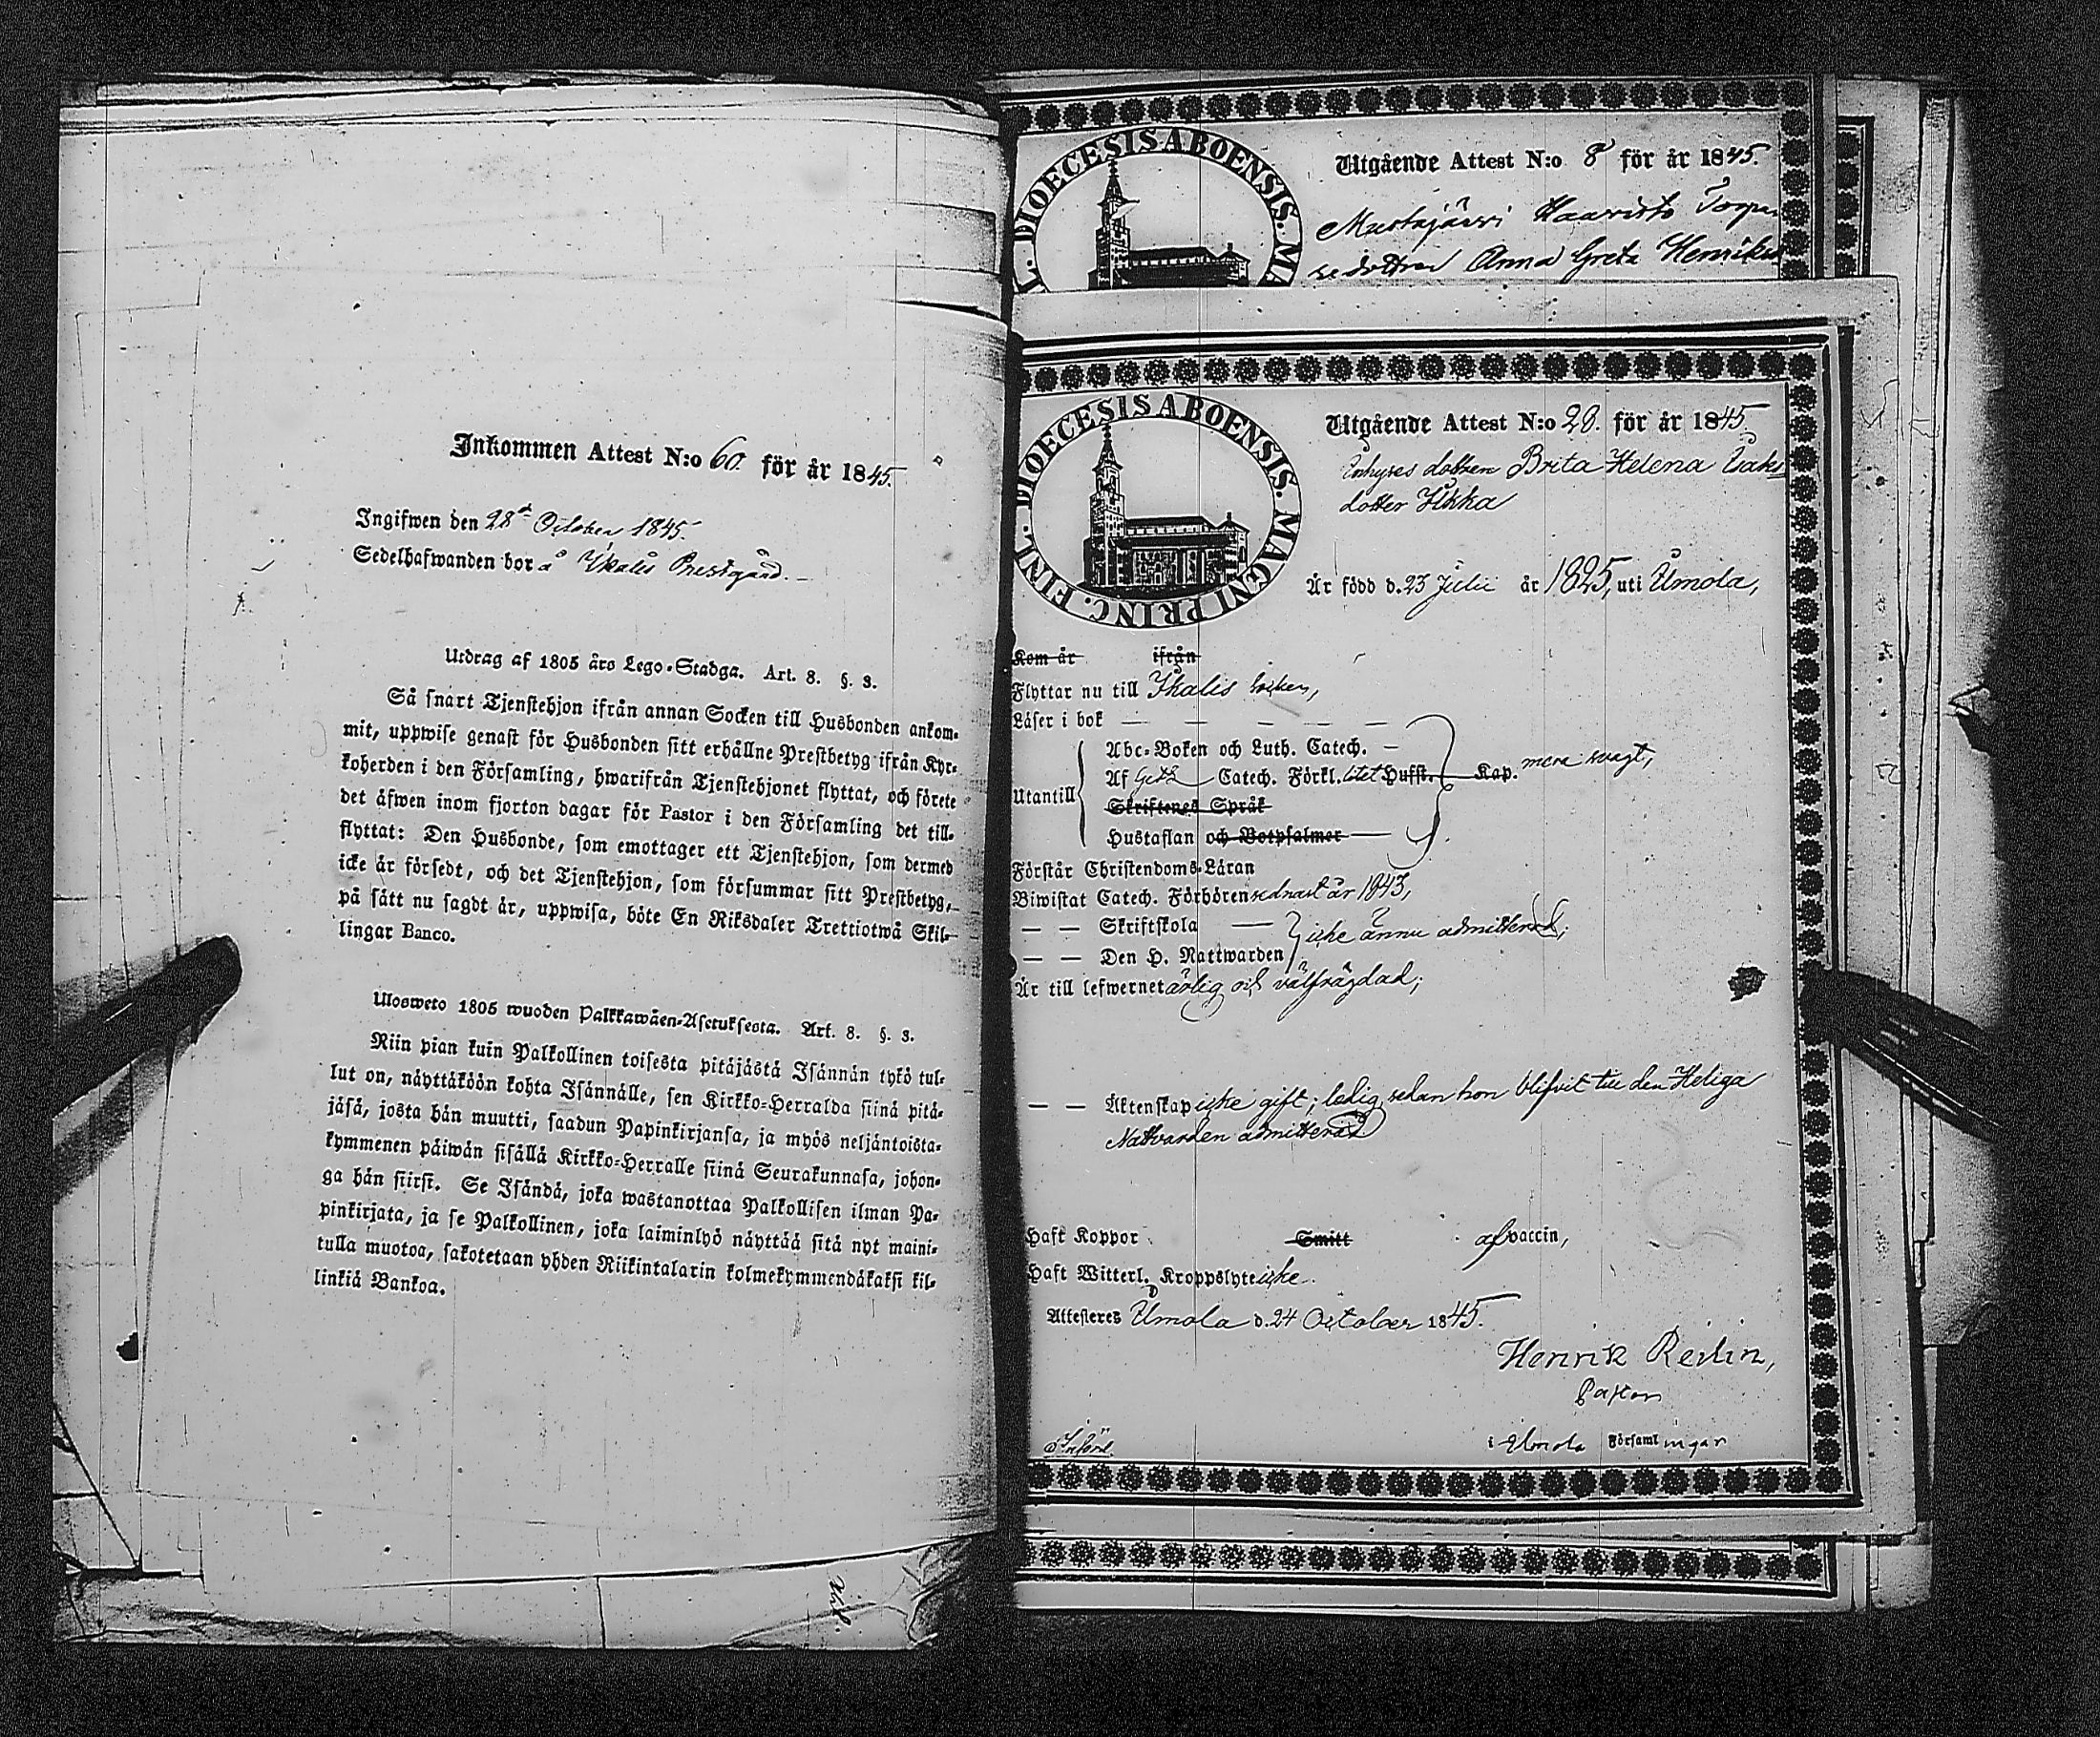 Inkommen Attest N:o 60. för år 1845.
Ingifwen den 28de October 1845.
Sedelhafwanden bor å Ikalis Prestgård.
Utdrag af 1805 års Lego-Stadga. Art. 8. §. 3.
Så snart Tjenstehjon ifrån annan Socken till Husbonden ankom-
mit, uppwise genast för Husbonden sitt erhållne Prestbetyg ifrån Kyr-
koherden i den Församling, hwarifrån Tjenstehjonet flyttat, och förete
det äfwen inom fjorton dagar för Pastor i den Församling det till-
flyttat: Den Husbonde, som emottager ett Tjenstehjon, som dermed
icke är försedt, och det Tjenstehjon, som försummar sitt Prestbetyg,
på sätt nu sagdt är, uppwisa, böte En Riksdaler Trettiotwå Skil-
lingar Banco.
Ulosweto 1805 wuoden Palkkawäen-Asetuksesta. Art. 8. §. 3.
Niin pian kuin Palkollinen toisesta pitäjästä Isännän tykö tul-
lut on, näyttäköön kohta Isännälle, sen Kirkko-Herralda siinä pitä-
jäsä, josta hän muutti, saadun Papinkirjansa, ja myös neljäntoista-
kymmenen päiwän sisällä Kirkko-Herralle siinä Seurakunnasa, johon-
ga hän siirsi. Se Isändä, joka wastanottaa Palkollisen ilman Pa-
pinkirjata, ja se Palkollinen, joka laiminlyö näyttää sitä nyt maini-
tulla muotoa, sakotetaan yhden Riikintalarin kolmekymmendäkaksi kil-
linkiä Bankoa.
Utgående Attest N:o 8 för år 1845.
Mustajärvi Haavisto Torpa
Anna Greta Henriks
DIOECESIS ABOENSIS. MA
Utgående Attest N:o 20. för år 1845
Inhyses dottren Brita Helena Isaks
dotter Ikka
DIOECESIS ABOENSIS. MAGNI PRINC. FINL.
Är född d. 23 Julii år 1825, uti Urnola,
Kom år ifrån
Flyttar nu till Ikalis Socken,
Läser i bok
Abc-Boken och Luth. Catech.
Af Catech. Förkl. litet Hufst. Kap. mera svagt,
Utantill
Skriftenes Språk
Hustaflan och Botpsalmer
Förstår Christendoms-Läran
Biwistat Catech. Förhören sednast år 1843,
— — Skriftskola
icke ännu admitterad;
— — Den H. Nattwarden
Är till lefwernet ärlig och välfrägdad;
— — Äktenskap icke gift; ledig, sedan hon blifvit till den Heliga
Nattvarden admitterad
Haft Koppor Smitt af vaccin,
Haft Witterl. Kroppslyte icke.
Attesteres d. 24 October 1845.
Henrik Revlin,
Pastor
i Församlingar